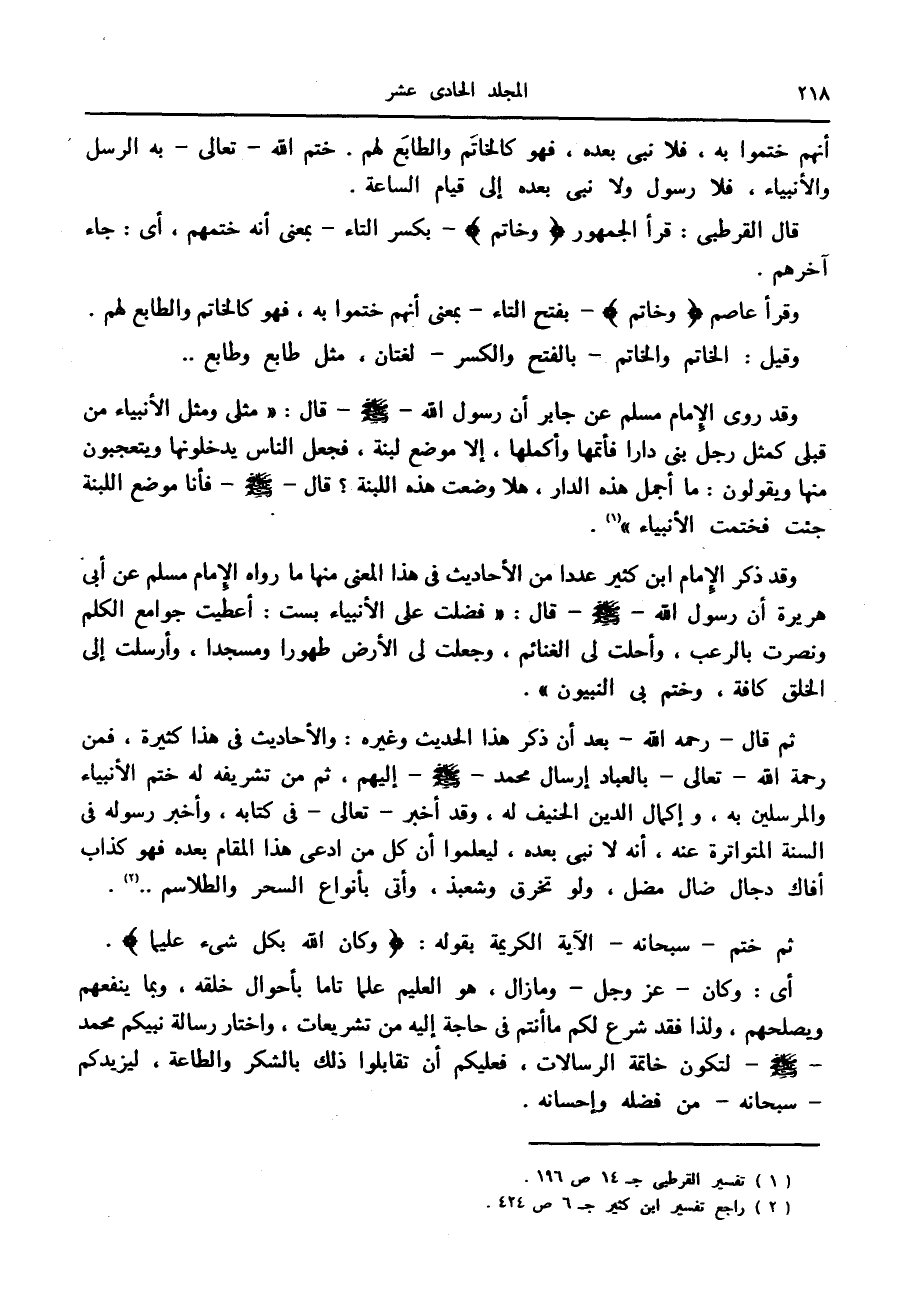 ٢١٨ المجلد الحادى عشر
أنهم ختموا به ، فلا نبى بعده ، فهو كالخاتَم والطابَع لهم . ختم الله - تعالى - به الرسل
والأنبياء ، فلا رسول ولا نبى بعده إلى قيام الساعة .
قال القرطبى : قرأ الجمهور ﴿ وخاتم ﴾ - بكسر التاء - بمعنى أنه ختمهم ، أى : جاء
آخرهم .
وقرأ عاصم ﴿ وخاتم ﴾ - بفتح التاء - بمعنى أنهم ختموا به ، فهو كالخاتم والطابع لهم .
وقيل : الخاتم والخاتم - بالفتح والكسر - لغتان ، مثل طابع وطابع ..
وقد روى الإمام مسلم عن جابر أن رسول الله - ﷺ - قال : « مثلى ومثل الأنبياء من
قبلى كمثل رجل بنى دارا فأتمها وأكملها ، إلا موضع لبنة ، فجعل الناس يدخلونها ويتعجبون
منها ويقولون : ما أجمل هذه الدار ، هلا وضعت هذه اللبنة ؟ قال - ﷺ - فأنا موضع اللبنة
جئت فختمت الأنبياء »(١) .
وقد ذكر الإمام ابن كثير عددا من الأحاديث فى هذا المعنى منها ما رواه الإمام مسلم عن أبى
هريرة أن رسول الله - ﷺ - قال : « فضلت على الأنبياء بست : أعطيت جوامع الكلم
ونصرت بالرعب ، وأحلت لى الغنائم ، وجعلت لى الأرض طهورا ومسجدا ، وأرسلت إلى
الخلق كافة ، وختم بى النبيون » .
ثم قال - رحمه الله - بعد أن ذكر هذا الحديث وغيره : والأحاديث فى هذا كثيرة ، فمن
رحمة الله - تعالى - بالعباد إرسال محمد - ﷺ - إليهم ، ثم من تشريفه له ختم الأنبياء
والمرسلين به ، و إكمال الدين الحنيف له ، وقد أخبر - تعالى - فى كتابه ، وأخبر رسوله فى
السنة المتواترة عنه ، أنه لا نبى بعده ، ليعلموا أن كل من ادعى هذا المقام بعده فهو كذاب
أفاك دجال ضال مضل ، ولو تخرق وشعبذ ، وأتى بأنواع السحر والطلاسم ..(٢) .
ثم ختم - سبحانه - الآية الكريمة بقوله : ﴿ وكان الله بكل شىء عليما ﴾ .
أى : وكان - عز وجل - ومازال ، هو العليم علما تاما بأحوال خلقه ، وبما ينفعهم
ويصلحهم ، ولذا فقد شرع لكم ماأنتم فى حاجة إليه من تشريعات ، واختار رسالة نبيكم محمد
- ﷺ - لتكون خاتمة الرسالات ، فعليكم أن تقابلوا ذلك بالشكر والطاعة ، ليزيدكم
- سبحانه - من فضله وإحسانه .
( ١ ) تفسير القرطبى جـ ١٤ ص ١٩٦ .
( ٢ ) راجع تفسير ابن كثير جـ ٦ ص ٤٢٤ .